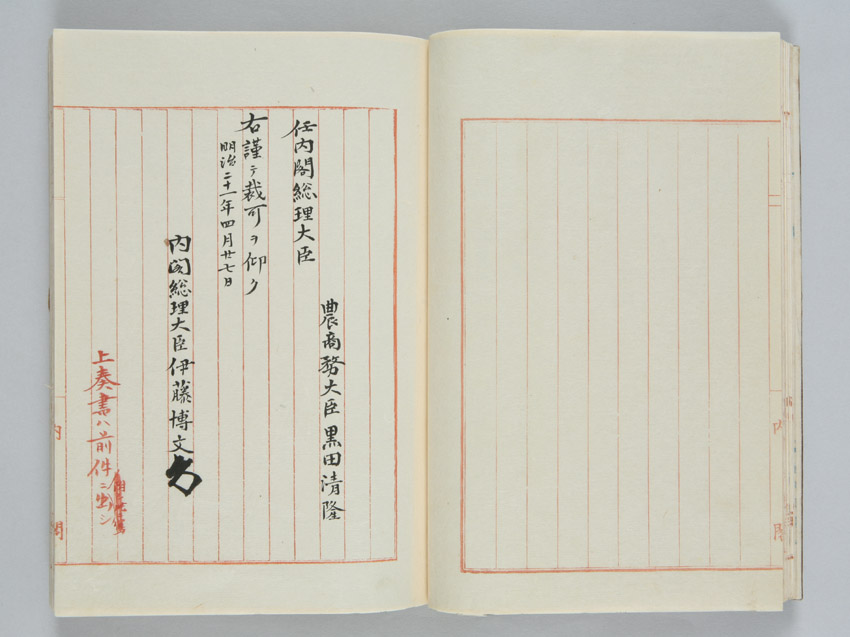 農商務大臣黒田清隆
任内閣総理大臣
右謹テ裁可ヲ仰ク
明治二十一年四月廿七日
内閣総理大臣伊藤博文
上奏書ハ前件ニ
内閣
内閣